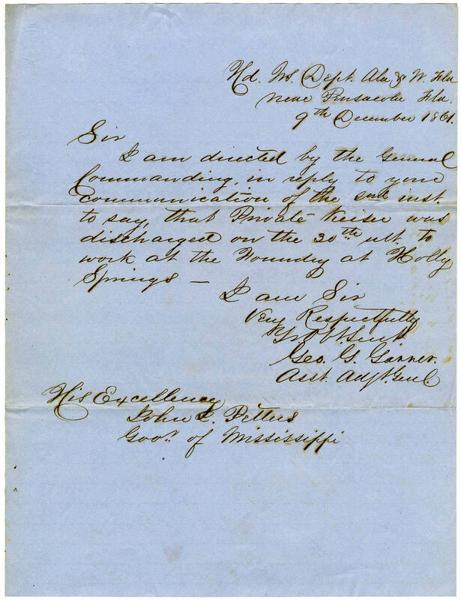 Hd. Qrs. Dept. Ala & W. Fla
Near Pensacola Fla.
9th December 1861.
Sir
I am directed by the General
Commanding, in reply to your
Communication of the inst.
to say, that Private Keise was
discharged on the 30th ult. to
work at the Foundry at Holly
Springs —
I am Sir
Very Respectfully
Yr Obt. Svt
Geo. G. Garner.
Asst. Adjt. Genl
His Excellency
John J. Pettus
Govr. of Mississippi